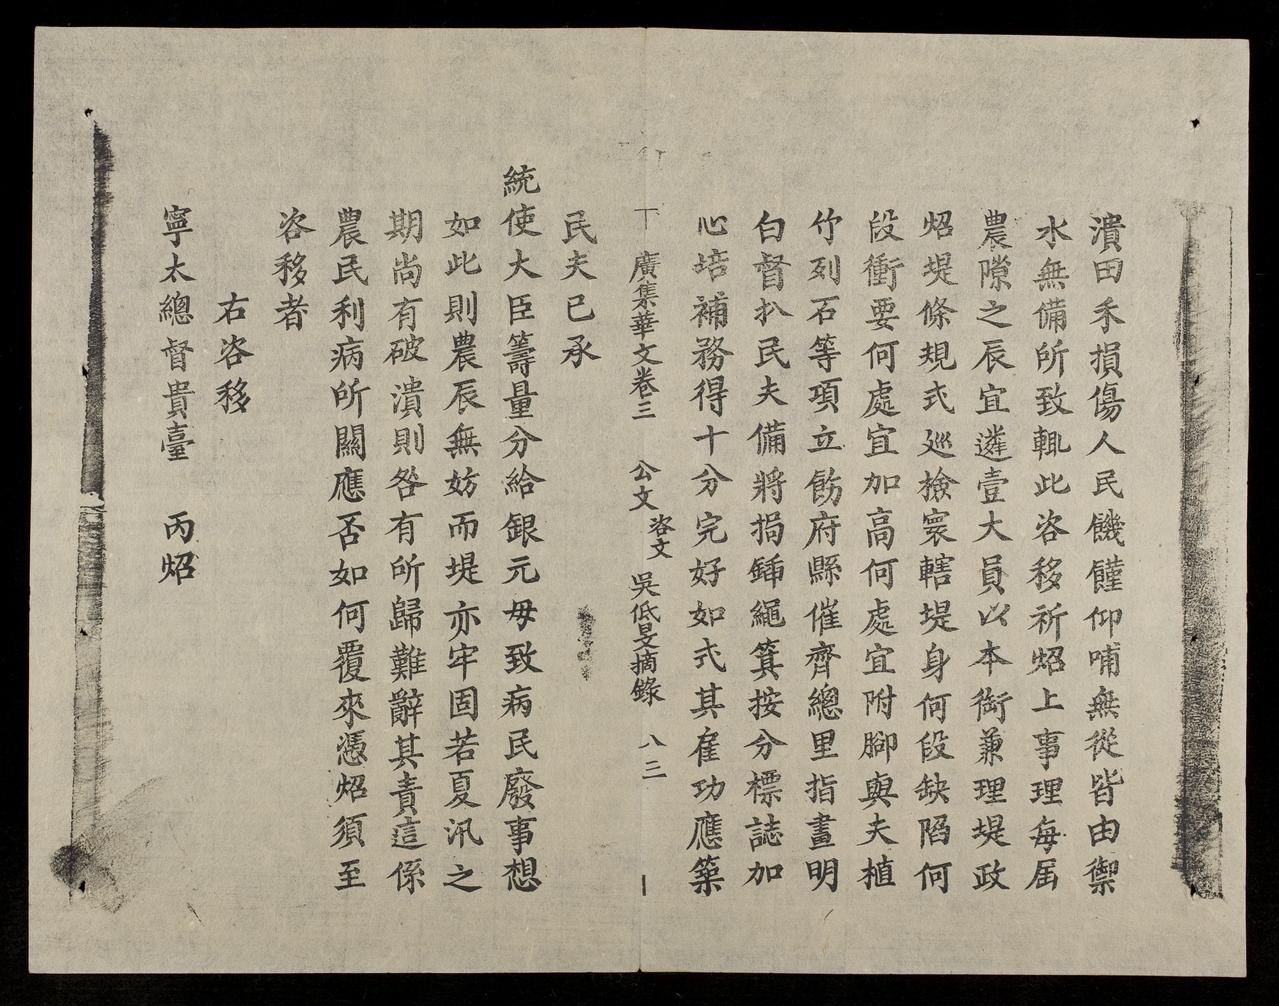 潰田禾損傷人民饑饉仰哺無從皆由禦
水無備所致輒此咨移祈炤上事理每屆
農隙之辰宜遴壹大員以本銜兼理堤政
炤堤條規式廵撿寰轄堤身何段缺陷何
段衝要何處宜加高何處宜附腳與夫植
竹列石等項立飭府縣催齊總里指畫明
白督扒民夫備將挶鍤繩箕按分標誌加
心培補務得十分完好如式其雇功應築
廣集華文卷三 公文 咨文 吳低旻摘錄 八三
民夫已承
統使大臣籌量分給銀元毋致病民廢事想
如此則農辰無妨而堤亦牢固若夏汛之
期尚有破潰則咎有所歸難辭其責這係
農民利病所關應否如何覆來憑炤須至
咨移者
右咨移
寧太總督貴臺 丙炤